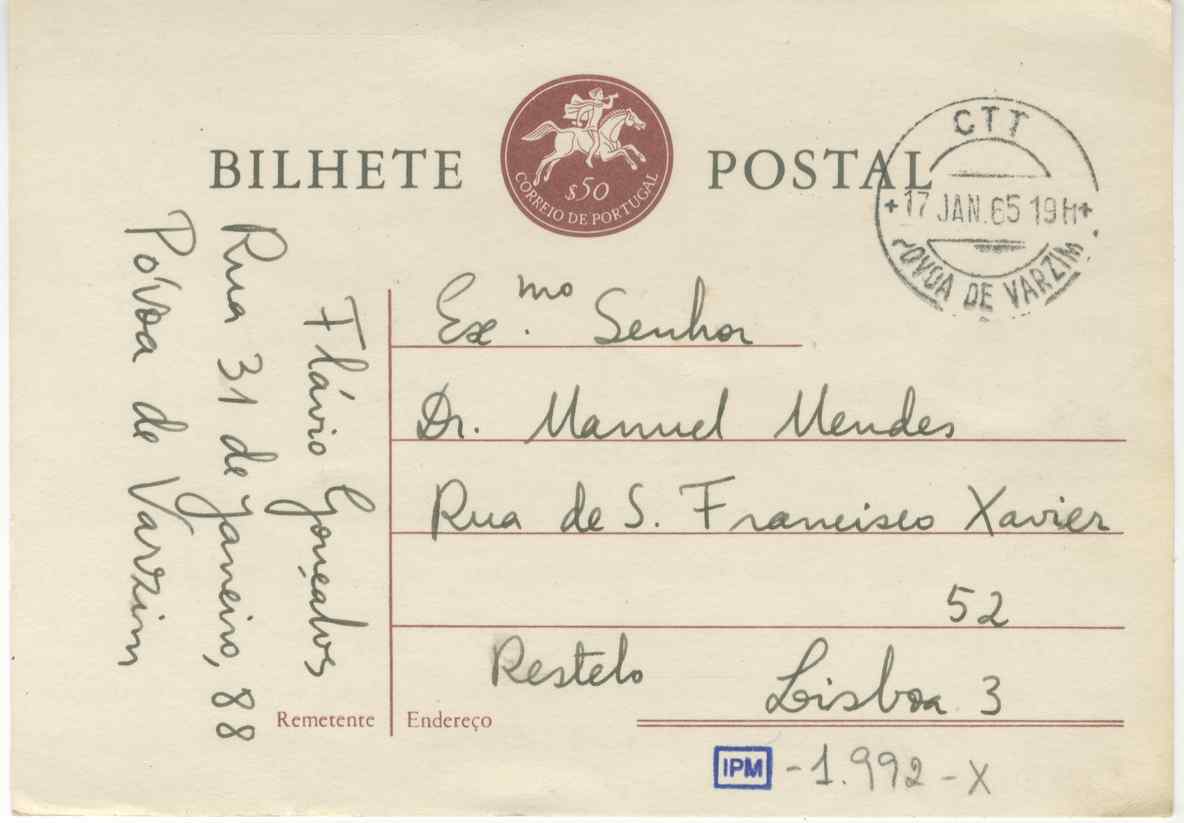 BILHETE POSTAL
$50
CORREIO DE PORTUGAL
CTT
+17 JAN.65 19H+
POVOA DE VARZIM
Flávio Gonçalves
Rua 31 de Janeiro, 88
Póvoa de Varzim
Remetente
Exmo. Senhor
Dr. Manuel Mendes
Rua de S. Francisco Xavier
52
Restelo Lisboa 3
Endereço
IPM -1.992-X